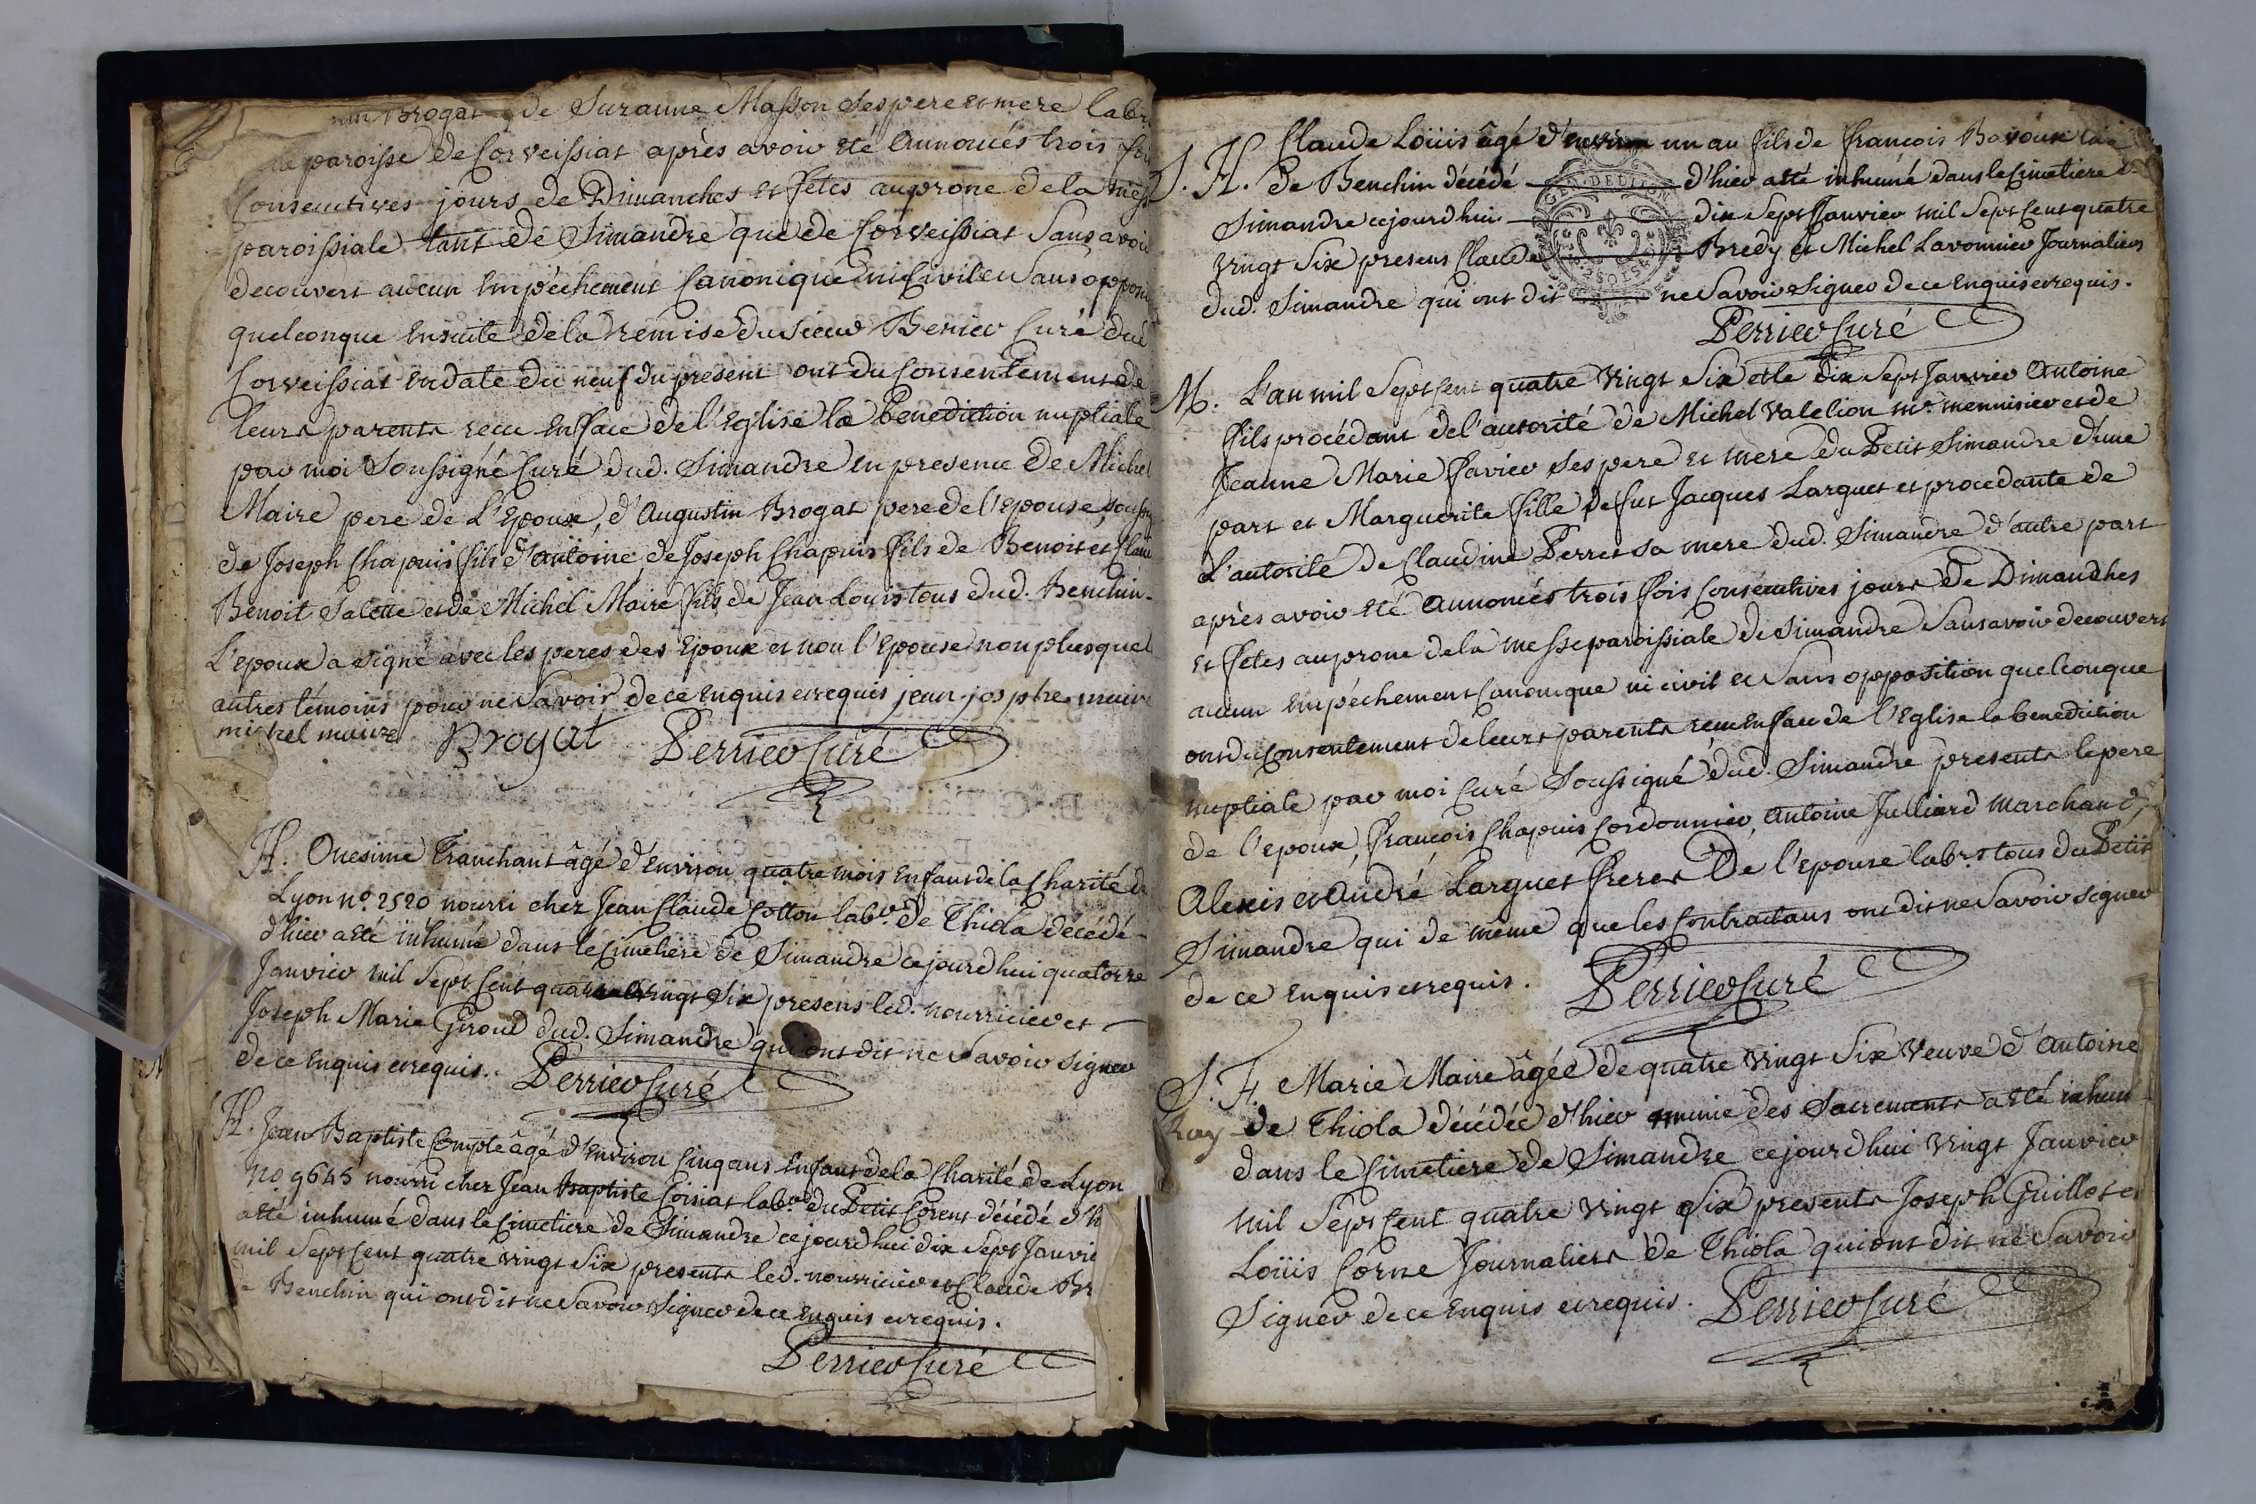 Brogat de Suzanne Masson ses pere et mere lab.
paroisse de Corveissiat après avoir été annoncés trois
Consecutives jours de Dimanches et fêtes au prone de la
paroissiale tant de Simandre que de Corveissiat Sans avoir
decouvert aucun Empéchement Canonique ni Civil et Sans
quelconque Ensuite de la remise du Sieur Curé dud.
Corveissiat En date du neuf du present ont du Consentement de
leurs parents recu En face de l'Eglise la benediction nuptiale
par moi Soussigné Curé dud. Simandre en presence de Michel
Maire pere de L'Epoux, d'Augustin Brogat pere de l'epouse,
de Joseph Chapuis fils d'antoine, de Joseph Chapuis fils de Benoit et
Benoit et de Michel Maire fils de Jean Louis tous dud. Benchin.
L'epoux a signé avec les peres des Epoux et non l'Epouse non plus que
autres témoins pour ne Savoir de ce Enquis et requis jean josphe maire
michel maire Brogat Perrier Curé
H. Onesime Tranchant âgé d'Environ quatre mois Enfant de la Charité de
Lyon n.º 2520 nourri chez Jean Claude Cotton lab.r de Thiola décédé
d'hier a été inhumé dans le Cimetiere de Simandre cejourdhui quatorze
Janvier mil Sept Cent quatre vingt Six presens led. nourricier et
Joseph Marie Giroud dud. Simandre qui ont dit ne Savoir signer
de ce Enquis et requis. Perrier Curé
H. Jean Baptiste Compte âgé d'Environ Cinq ans Enfant de la Charité de Lyon
No 9645 nourri chez Jean Baptiste Coisiat lab.r du Petit Corent décédé d'h
a été inhumé dans le Cimetiere de Simandre ce jourdhui dix Sept Janvie
mil Sept Cent quatre vingt Six presents led. nourricier et Claude Br
de Benchin qui ont dit ne Savoir Signer de ce Enquis et requis.
Perrier Curé
S. H. Claude Loüis âgé d'environ un an fils de François
de Benchin décédé d'hier a été inhumé dans le Cimetiere de
Simandre cejourdhui dix Sept Janvier mil Sept Cent quatre
vingt Six presens Claude Bredy et Michel Lavonnier Journaliers
dud. Simandre qui ont dit ne Savoir Signer de ce Enquis et requis.
Perrier Curé
M. L'an mil Sept Cent quatre vingt Six et le dix Sept Janvier Antoine
fils procédant de l'autorité de Michel Valelion m.e mennisier et de
Jeanne Marie Favier ses pere et mere du Petit Simandre d'une
part et Marguerite fille de fut Jacques Larguet et procedante de
L'autorité de Claudine Perret sa mere dud. Simandre d'autre part
après avoir été annoncés trois fois Consécutives jours de Dimanches
et fetes au prone de la messe paroissiale de Simandre Sans avoir decouvert
aucun Empéchement Canonique ni civil et Sans opposition quelconque
ont du Consentement de leurs parents recu En face de l'Eglise la benediction
nuptiale par moi Curé Soussigné dud. Simandre presents le pere
de l'epoux, François Chapuis Cordonnier, Antoine Julliard marchand,
Alexis et André Larguet freres De l'epouse lab.rs tous du Petit
Simandre qui de même que les Contractans ont dit ne Savoir signer
de ce Enquis et requis. Perrier Curé
S. H. Marie Maire âgée de quatre vingt Six Veuve d'Antoine
Ray de Thiola décédée d'hier munie des Sacrements a été inhum
dans le Cimetiere de Simandre cejourdhui Vingt Janvier
mil Sept Cent quatre vingt Six presents Joseph Guillot et
Loüis Corne Journaliers de Thiola qui ont dit ne Savoir
Signer de ce Enquis et requis. Perrier Curé